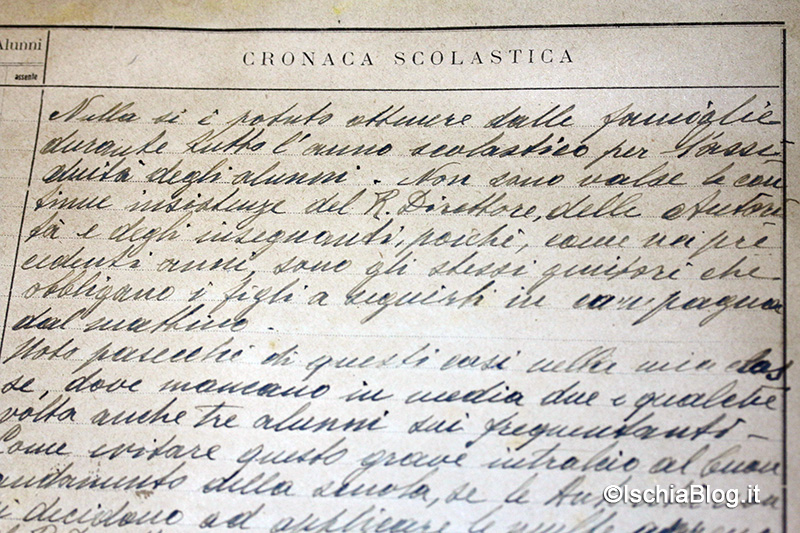 Alunni
assente
CRONACA SCOLASTICA
Nulla si è potuto ottenere dalle famiglie
durante tutto l'anno scolastico per l'assi-
duità degli alunni. Non sono valse le con
tinue insistenze del R. Direttore, delle Autori
tà e degli insegnanti, poiché, come nei pre
cedenti anni, sono gli stessi genitori che
obbligano i figli a seguirli in campagna
dal mattino.
Noto parecchi di questi casi nella mia clas
se, dove mancano in media due e qualche
volta anche tre alunni sui frequentanti -
Come evitare questo grave intralcio al buon
andamento della scuola, se le
si decidono ad applicare le multe
©IschiaBlog.it